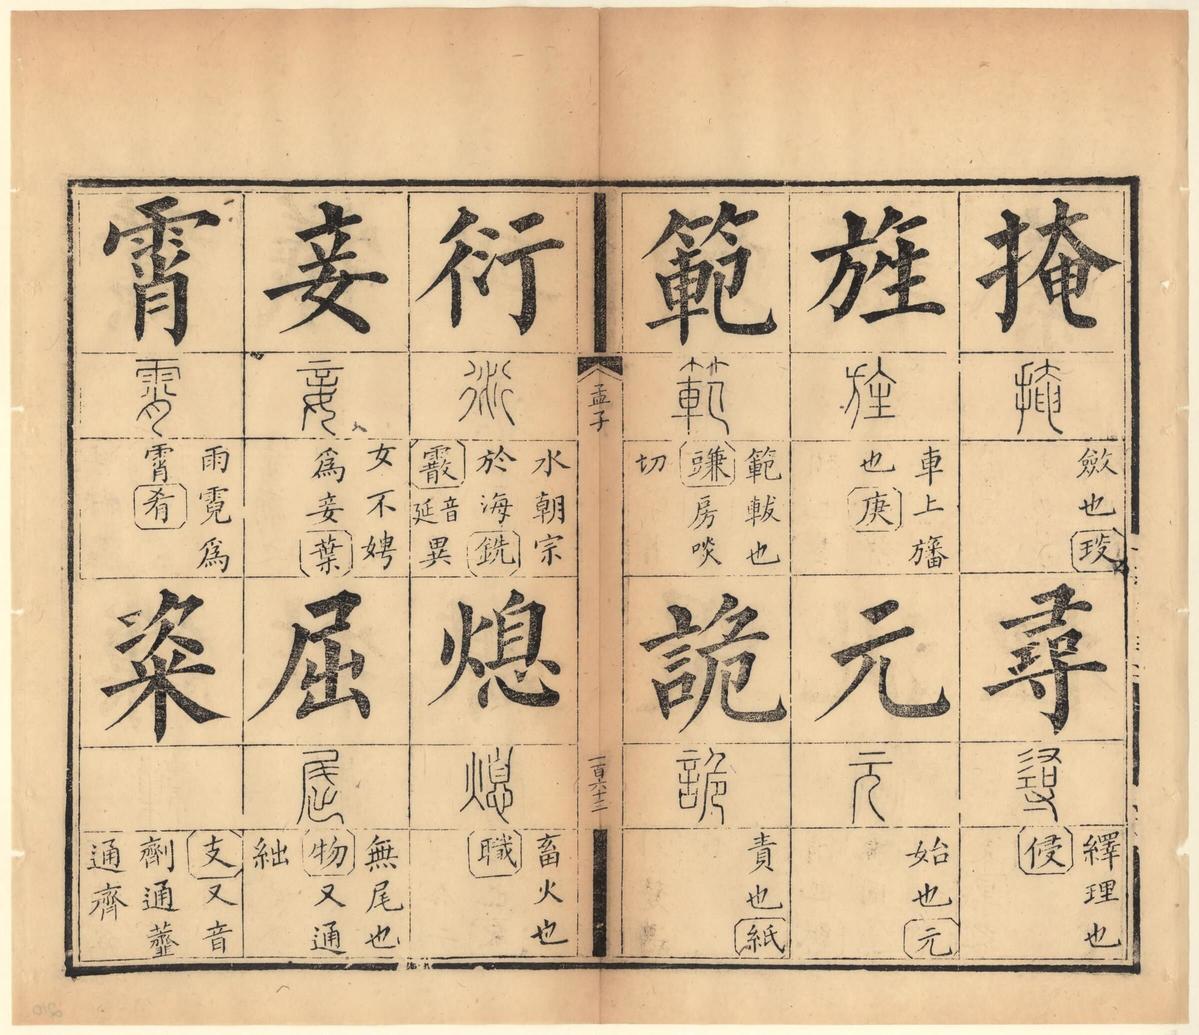 掩
掩
斂也
琰
尋
尋
繹理也
侵
旌
旌
車上旛
也
庚
元
元
始也
元
範
範
範軷也
豏房啖
切
詭
詭
責也
紙
孟子
一百六十三
衍
衍
水朝宗
於海銑
霰音延異
熄
熄
畜火也
職
妾
妾
女不娉
為妾葉
屈
屈
無尾也
物又通
絀
霄
霄
雨霓爲
霄肴
粢
支又音
劑通虀
通齊